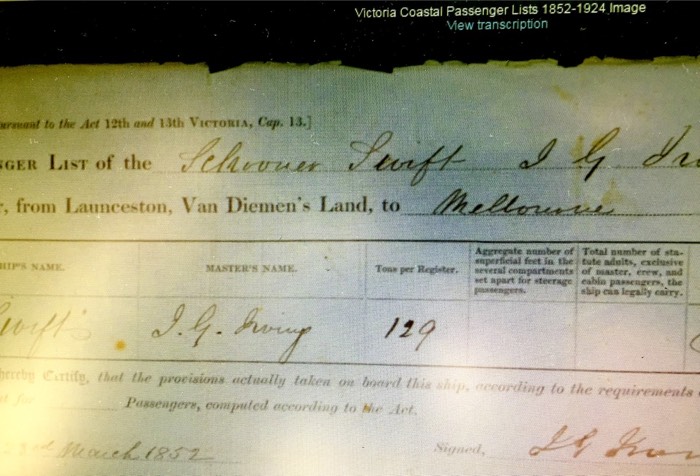 Victoria Coastal Passenger Lists 1852-1924 Image
View transcription
ursuant to the Act 12th and 13th VICTORIA, Cap. 13.]
NGER LIST of the Schooner Swift J G Irv
r, from Launceston, Van Diemen's Land, to Melbourne
HIP'S NAME.
MASTER'S NAME.
Tons per Register.
Aggregate number of
superficial feet in the
several compartments
set apart for steerage
passengers.
Total number of sta-
tute adults, exclusive
of master, crew, and
cabin passengers, the
ship can legally carry.
Swift J. G. Irving 129
hereby Certify, that the provisions actually taken on board this ship, according to the requirements
t for Passengers, computed according to the Act.
22nd March 1852 Signed, J G Irv